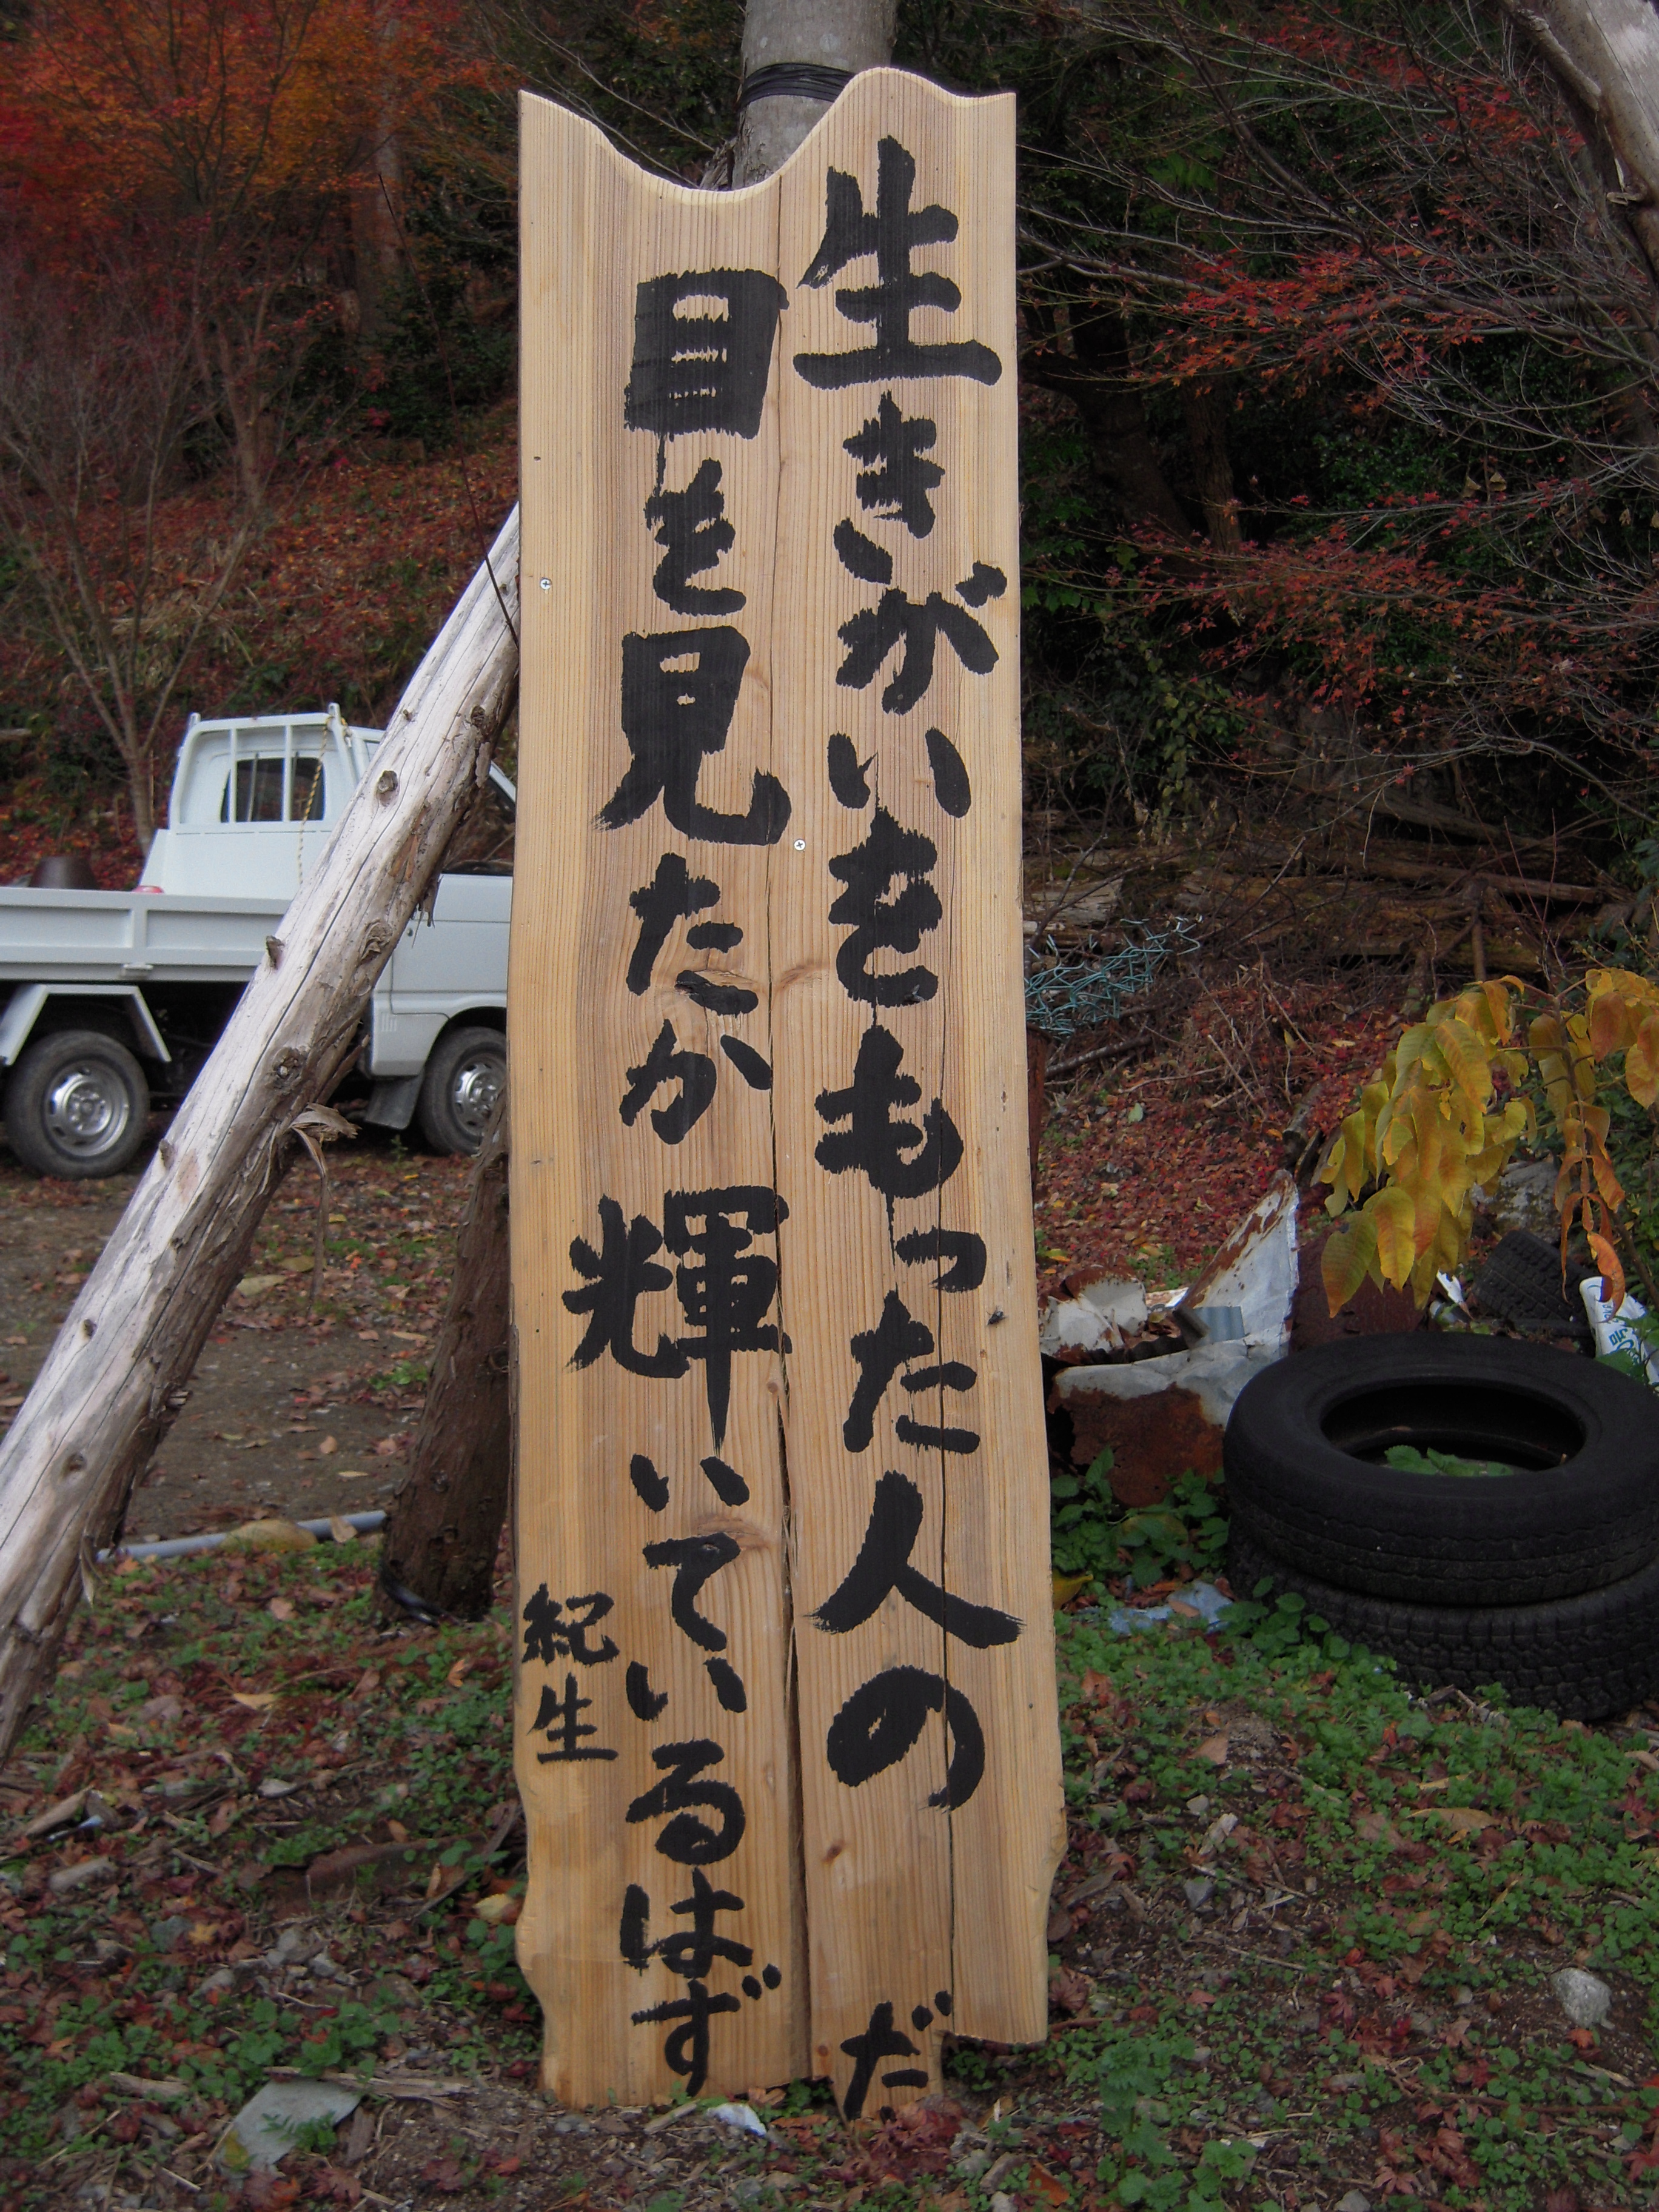 生きがいをもった人の
目を見たか輝いているはず
だ
紀生